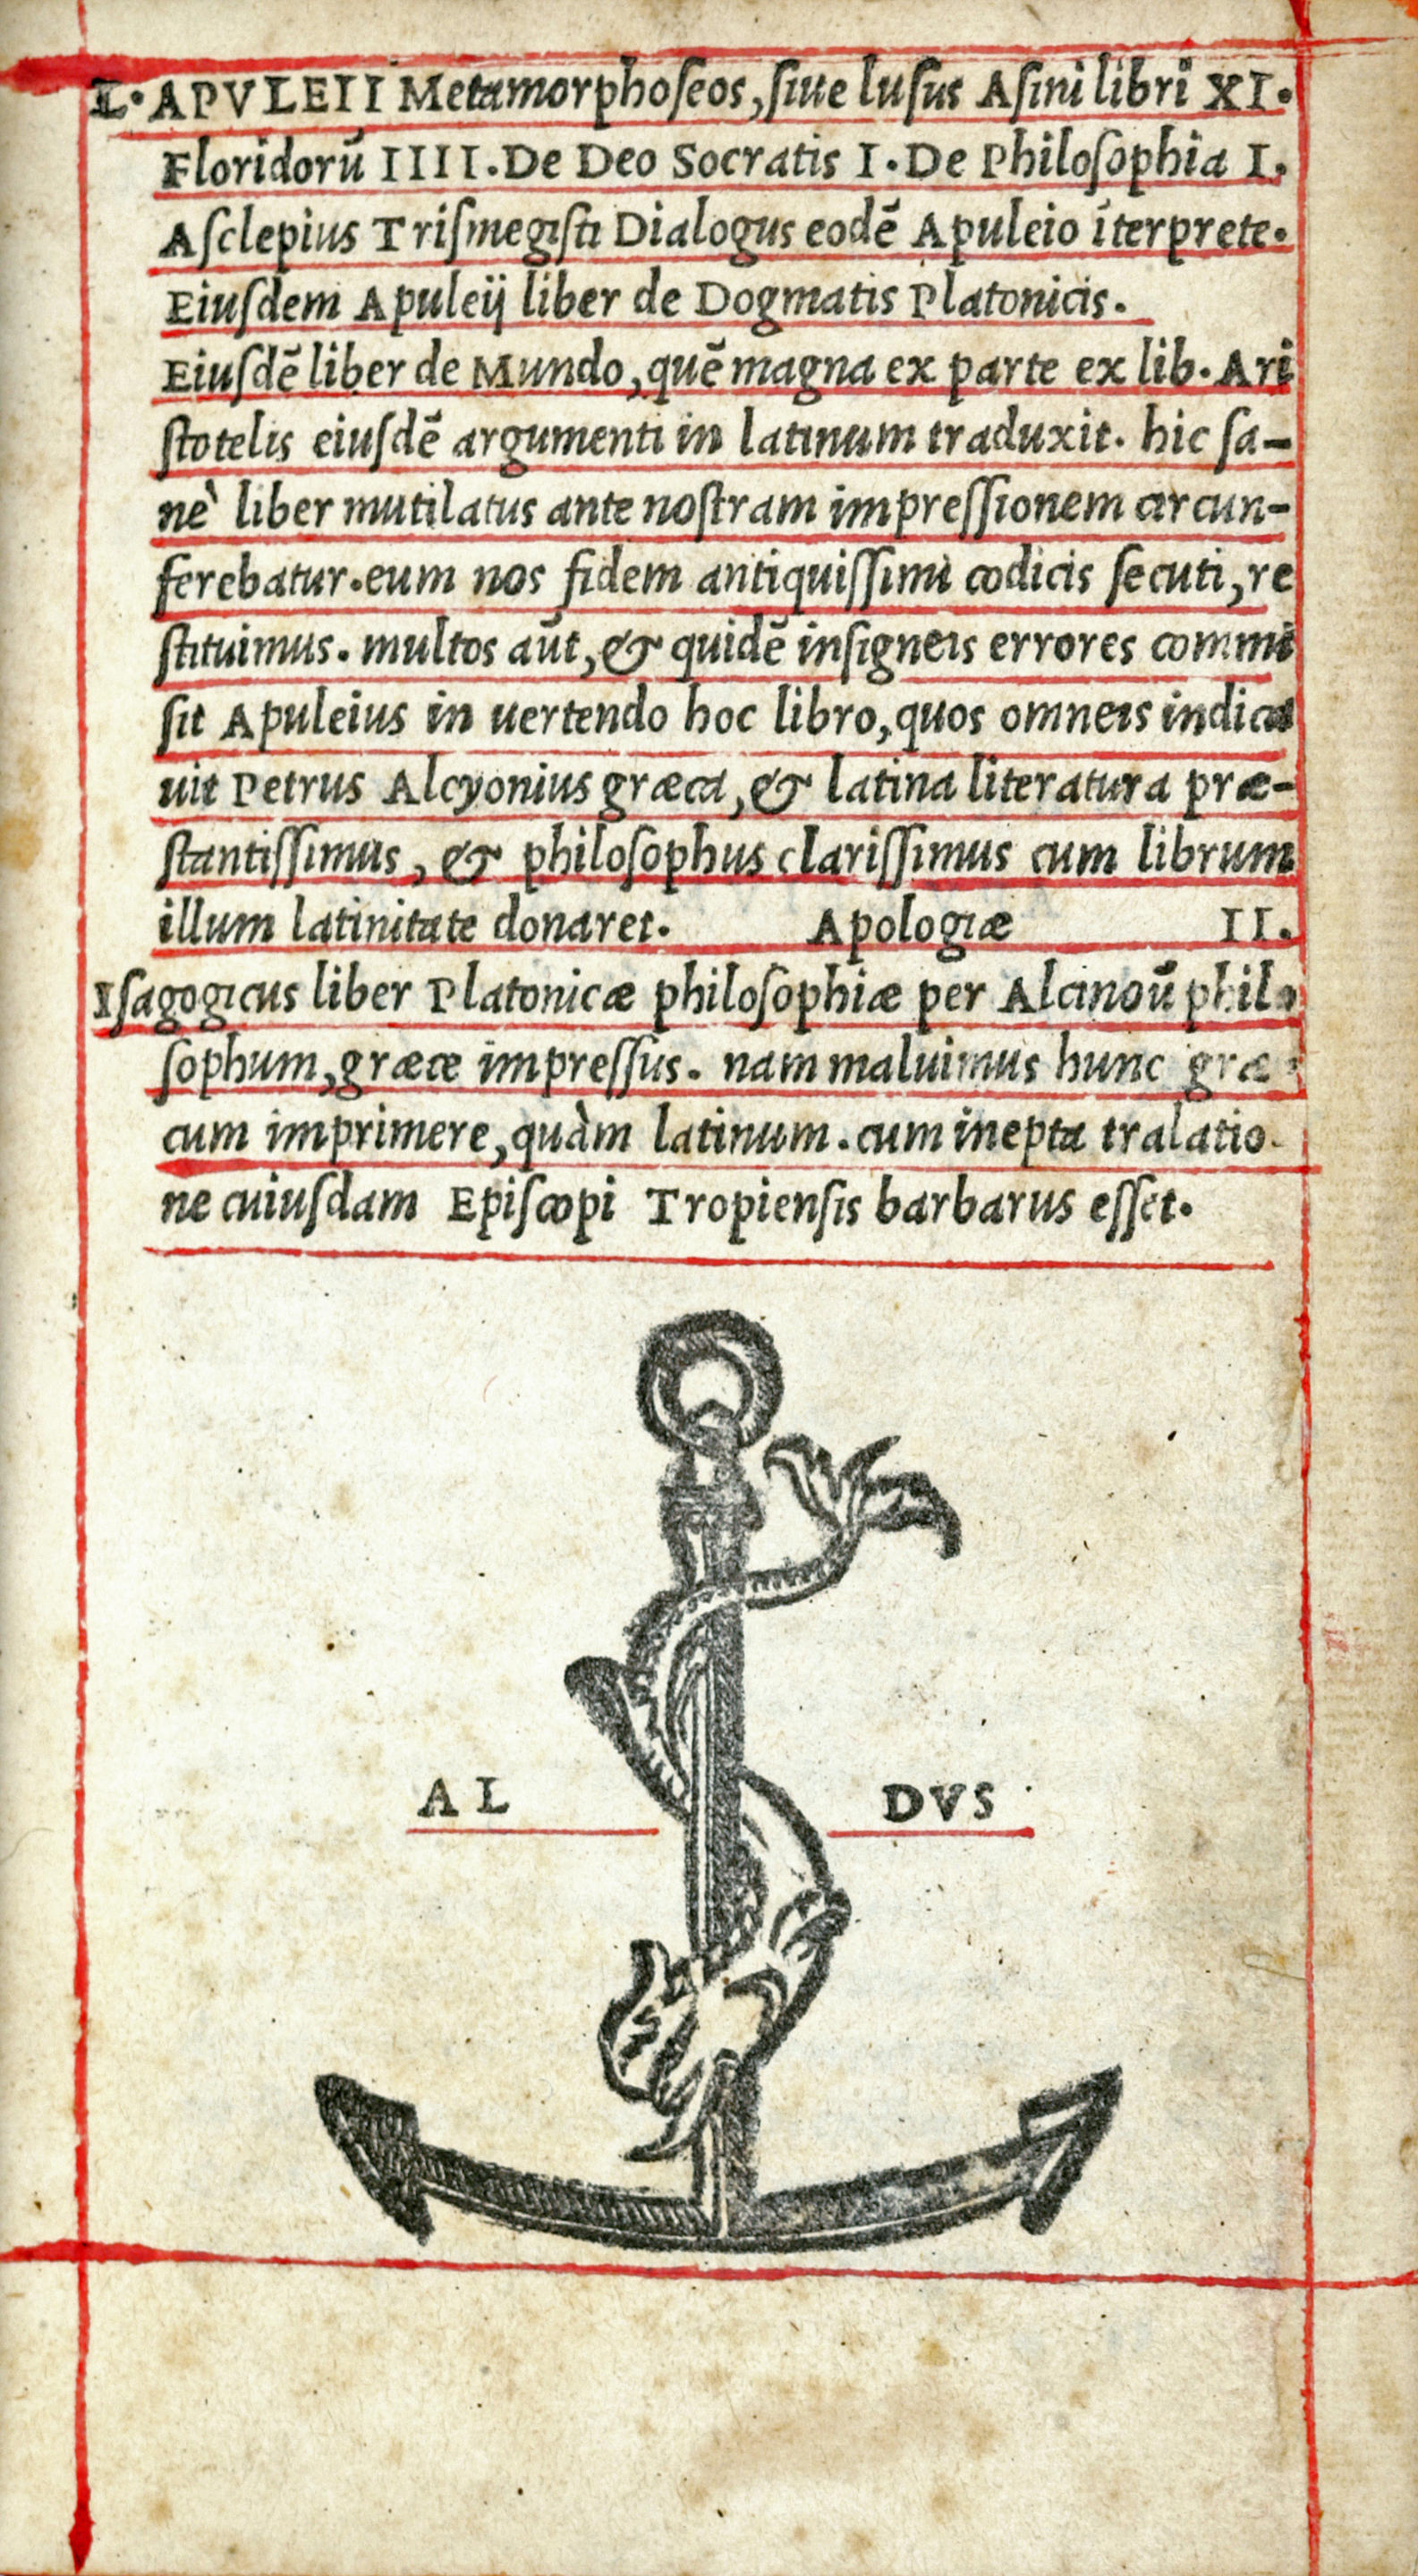 L. APVLEII Metamorphoſeos, ſiue luſus Aſini libri XI.
Floridorū IIII. De Deo Socratis I. De Philoſophia I.
Aſclepius Triſmegiſti Dialogus eodē Apuleio īterprete.
Eiuſdem Apuleij liber de Dogmatis Platonicis.
Eiuſdē liber de Mundo, quē magna ex parte ex lib. Ari
ſtotelis eiuſdē argumenti in latinum traduxit. hic ſa-
nè liber mutilatus ante noſtram impreſſionem circun-
ferebatur. eum nos fidem antiquiſſimi codicis ſecuti, re
ſtituimus. multos aūt, & quidē inſigneis errores commi
ſit Apuleius in uertendo hoc libro, quos omneis indica
uit Petrus Alcyonius græca, & latina literatura præ-
ſtantiſſimus, & philoſophus clariſſimus cum librum
illum latinitate donaret. Apologiæ II.
Iſagogicus liber Platonicæ philoſophiæ per Alcinoū philo
ſophum, græce impreſſus. nam maluimus hunc græ-
cum imprimere, quàm latinum. cum inepta tralatio-
ne cuiuſdam Epiſcopi Tropienſis barbarus eſſet.
AL DVS